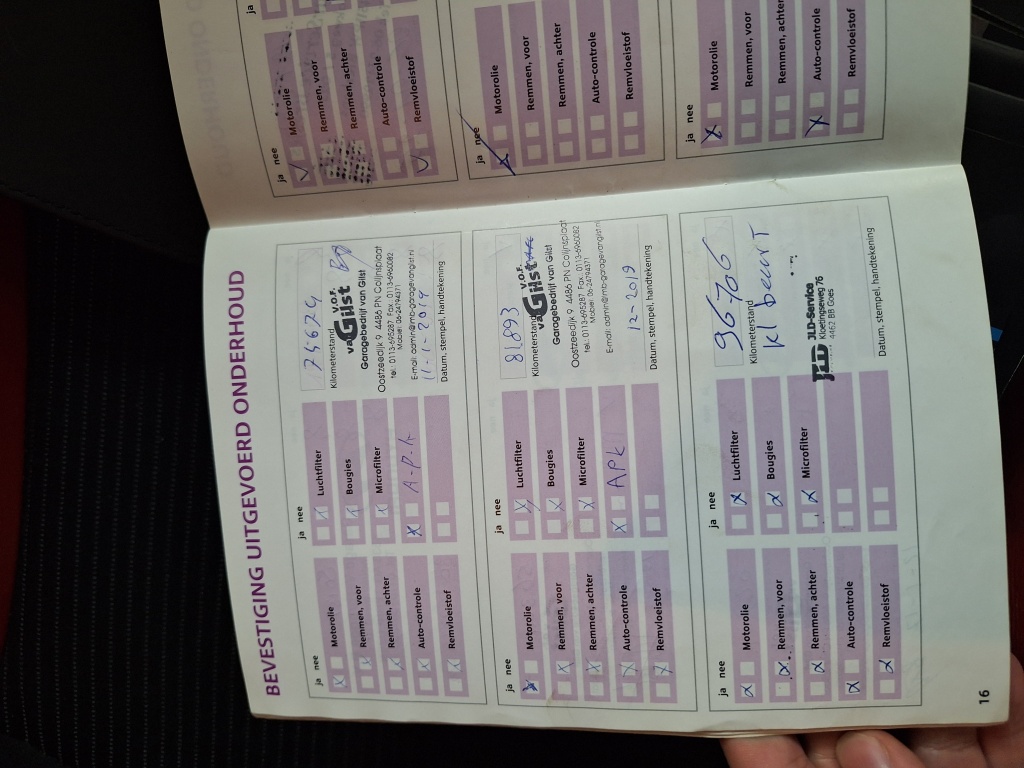 BEVESTIGING UITGEVOERD ONDERHOUD
ja nee
Motorolie
Remmen, voor
Remmen, achter
Auto-controle
Remvloeistof
ja nee
Luchtfilter
Bougies
Microfilter
A-P-K
Kilometerstand
V.O.F.
van Gilst
Garagebedrijf van Gilst
Oostzeedijk 9 4486 PN Colijnsplaat
tel.: 0113-695287 Fax.: 0113-6960082
Mobiel: 06-24794371
E-mail: admin@mb-garagevangilst.nl
11-1-2019
Datum, stempel, handtekening
ja nee
Motorolie
Remmen, voor
Remmen, achter
Auto-controle
Remvloeistof
ja nee
Luchtfilter
Bougies
Microfilter
APK
81.893
Kilometerstand
V.O.F.
van Gilst
Garagebedrijf van Gilst
Oostzeedijk 9 4486 PN Colijnsplaat
tel.: 0113-695287 Fax.: 0113-6960082
Mobiel: 06-24794371
E-mail: admin@mb-garagevangilst.nl
12-2019
Datum, stempel, handtekening
ja nee
Motorolie
Remmen, voor
Remmen, achter
Auto-controle
Remvloeistof
ja nee
Luchtfilter
Bougies
Microfilter
96706
Kilometerstand
kl beurt
JLD JLD-Service
Kloetingseweg 76
4462 BB Goes
Datum, stempel, handtekening
16
ja nee
Motorolie
Remmen, voor
Remmen, achter
Auto-controle
Remvloeistof
ja
ja nee
Motorolie
Remmen, voor
Remmen, achter
Auto-controle
Remvloeistof
ja nee
Motorolie
Remmen, voor
Remmen, achter
Auto-controle
Remvloeistof